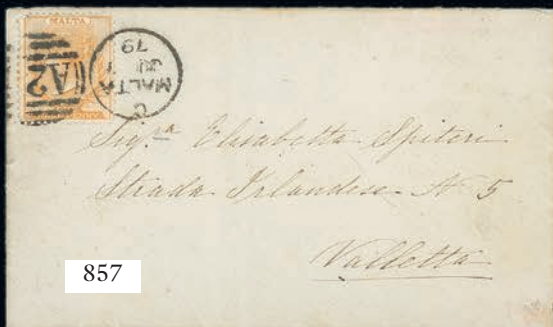 MALTA
A2
C
MALTA
79
Sigra Elisabetta Spiteri
Strada Irlandese No 5
Valletta
857